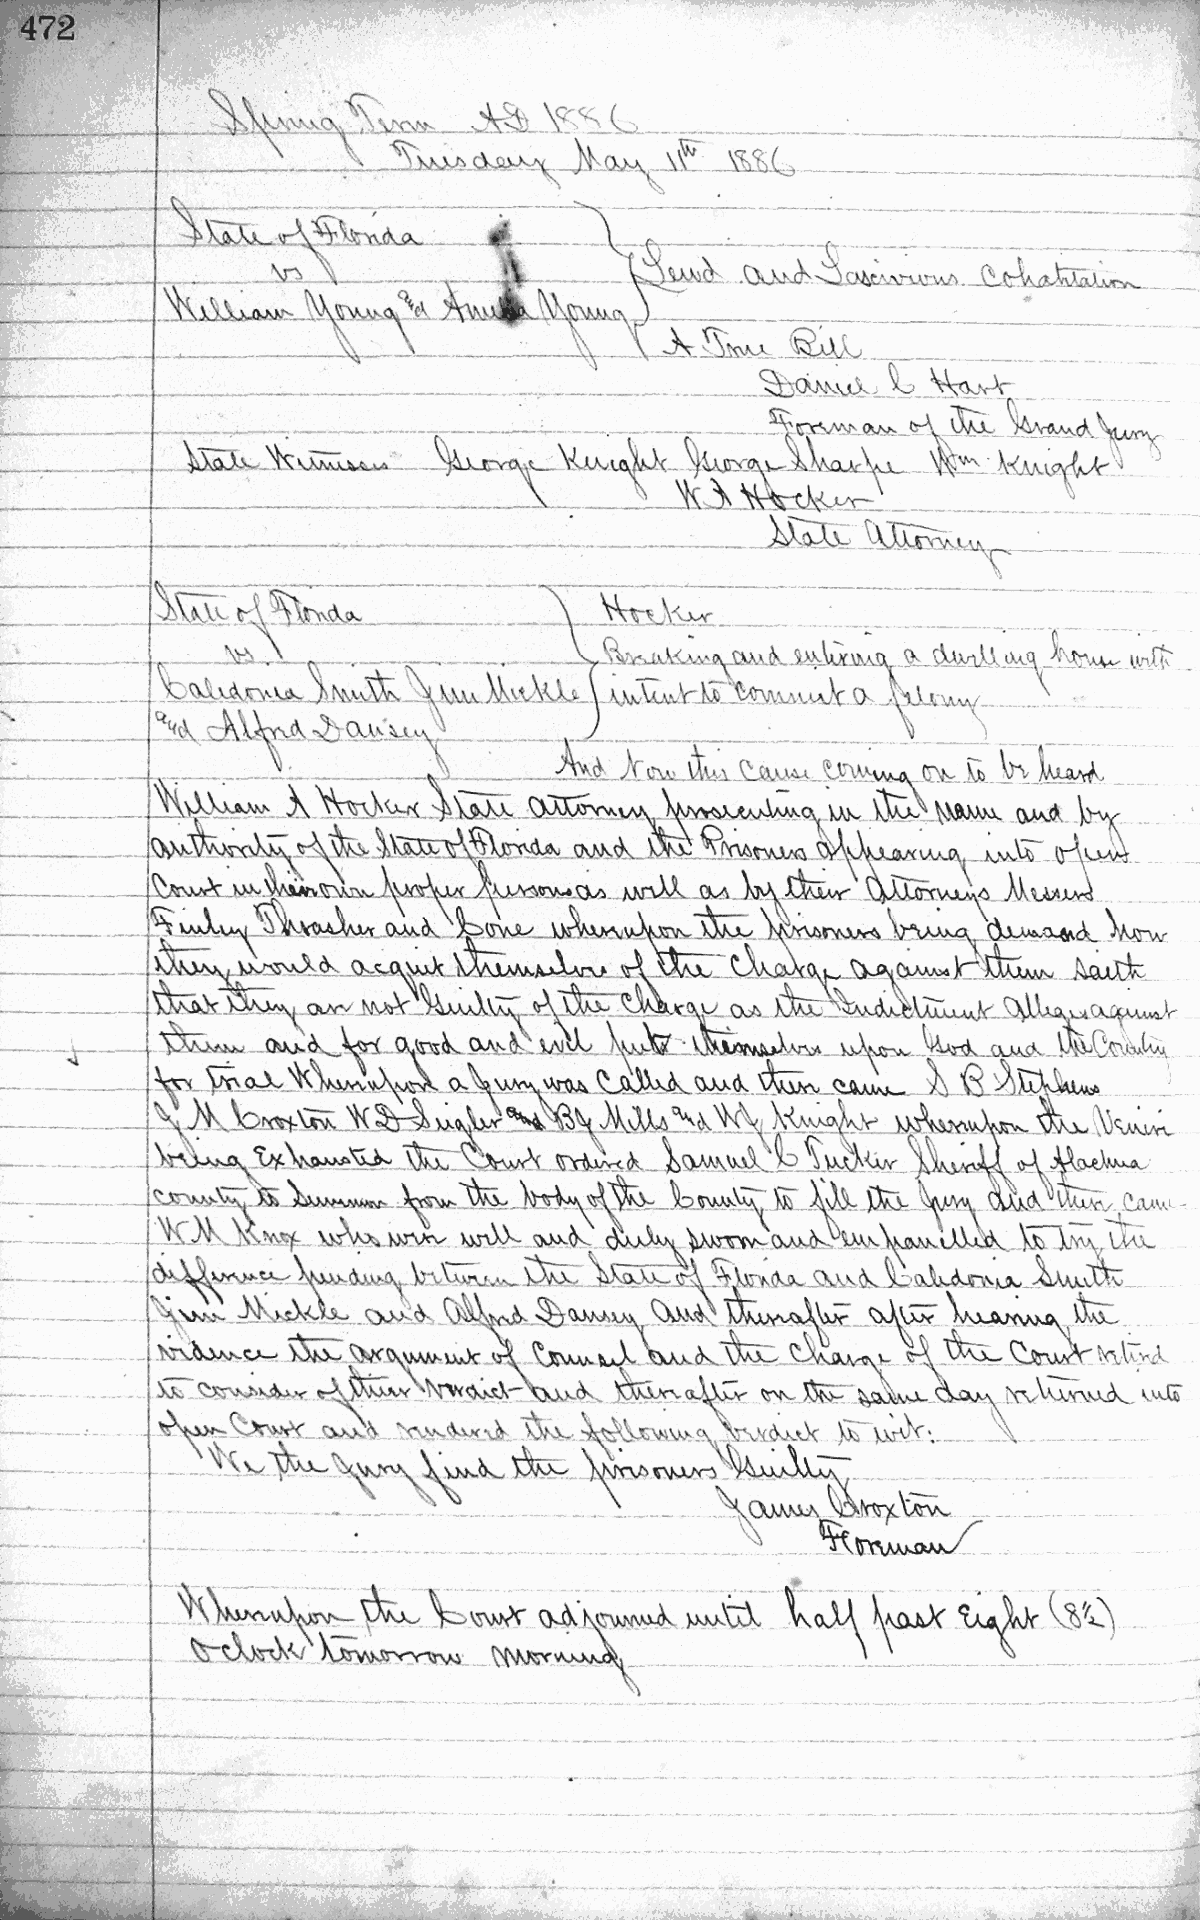 472
Spring Term AD 1886
Tuesday May 11th 1886
State of Florida
vs
William Young and Young
Lewd and Lascivious Cohabitation
A True Bill
Daniel C Hart
Foreman of the Grand Jury
State Witnesses George Knight George Sharpe Wm Knight
W A Hocker
State Attorney
State of Florida
vs
Caledonia Smith Jim Mickle
and Alfred Dansey
Hocker
Breaking and entering a dwelling house with
intent to commit a felony
And Now this Cause coming on to be heard
William A Hocker State Attorney prosecuting in the name and by
authority of the State of Florida and the Prisoners appearing into open
Court in their own proper persons as will as by their Attorneys Messers
Finley Thrasher and Cone whereupon the prisoners being demand how
they would acquit themselves of the Charge against them saith
that they are not Guilty of the Charge as the Indictment Alleges against
them and for good and evil puts themselves upon God and the Country
for trial Whereupon a Jury was Called and then came S B Stephens
J M Croxton W D Seigler and B J Mills and W J Knight whereupon the Venire
being Exhausted the Court ordered Samuel C Tucker Sheriff of Alachua
county to Summon from the body of the County to fill the Jury and then came
W M Knox who were well and duly sworn and empanelled to try the
difference pending between the State of Florida and Caledonia Smith
Jim Mickle and Alfred Dansey And thereafter after hearing the
vidence the argument of Counsel and the Charge of the Court retired
to consider of their Verdict and thereafter on the same day returned into
open Court and rendered the following verdict to wit:
We the Jury find the prisoners Guilty
James Croxton
Foreman
Whereupon the Court adjourned until half past Eight (8½)
O'clock tomorrow morning